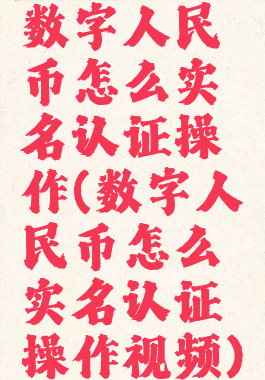 数字人民
币怎么实
名认证操
作(数字人
民币怎么
实名认证
操作视频)